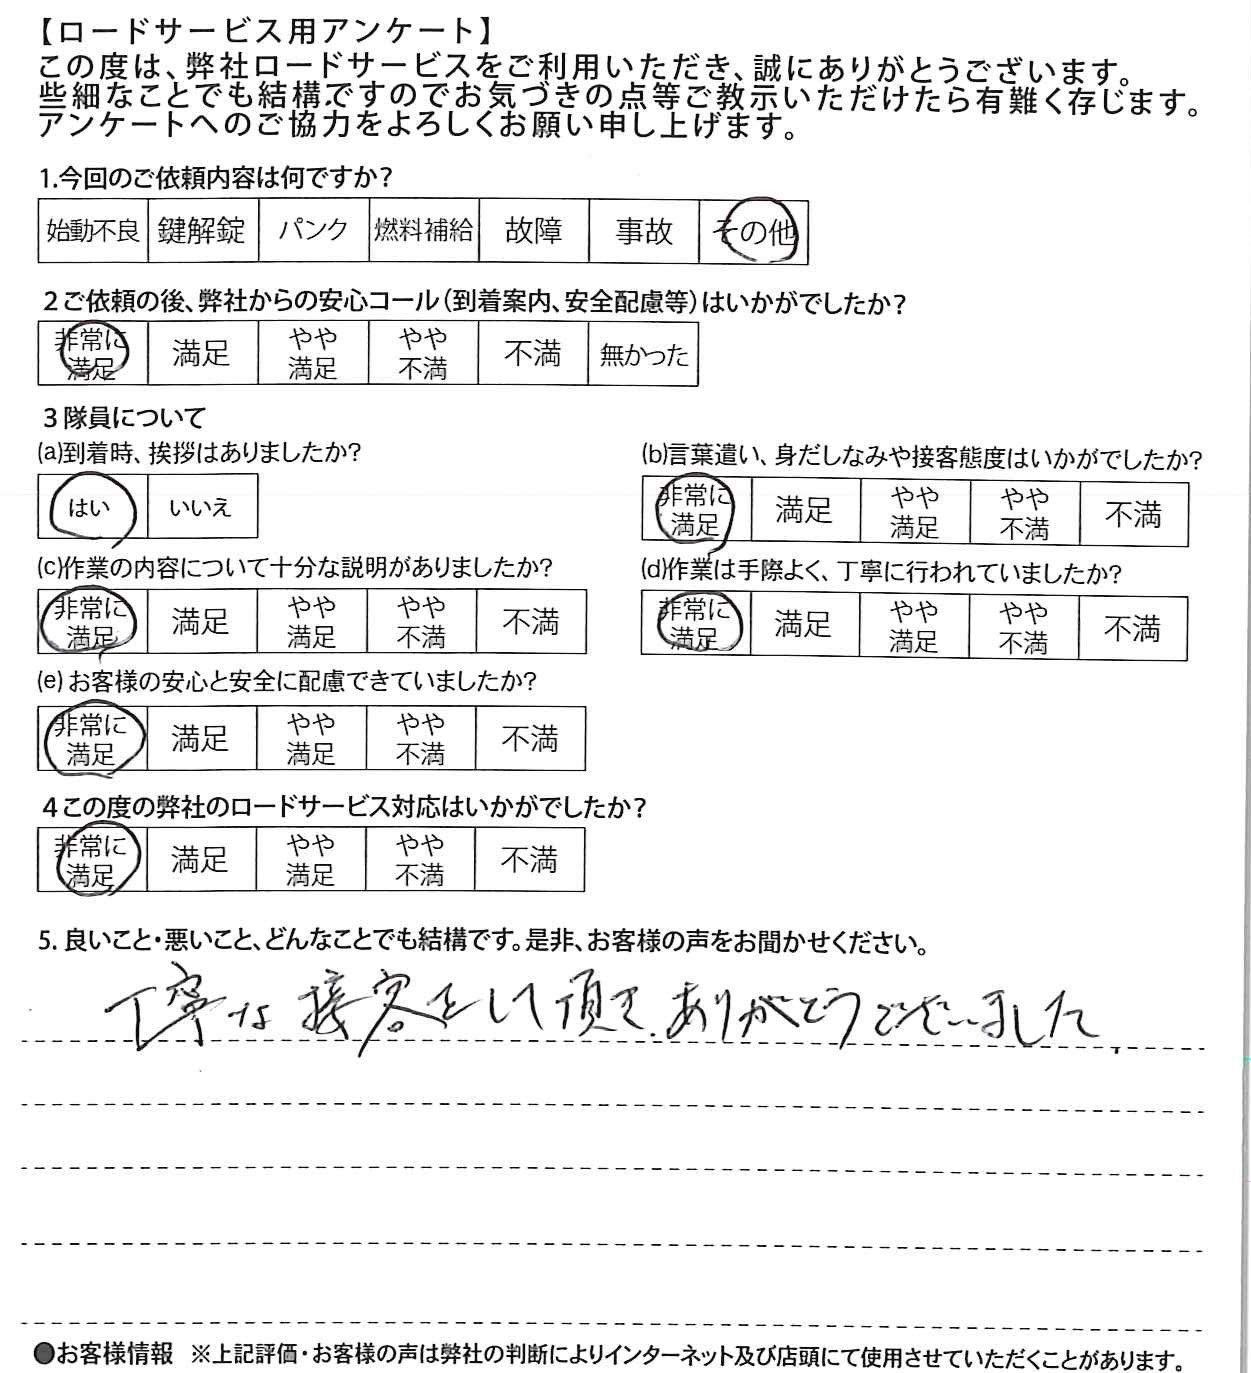 【ロードサービス用アンケート】
この度は、弊社ロードサービスをご利用いただき、誠にありがとうございます。
些細なことでも結構ですのでお気づきの点等ご教示いただけたら有難く存じます。
アンケートへのご協力をよろしくお願い申し上げます。
1.今回のご依頼内容は何ですか?
始動不良 鍵解錠 パンク 燃料補給 故障 事故 その他
2ご依頼の後、弊社からの安心コール(到着案内、安全配慮等)はいかがでしたか?
非常に満足 満足 やや満足 やや不満 不満 無かった
3隊員について
(a)到着時、挨拶はありましたか?
はい いいえ
(b)言葉遣い、身だしなみや接客態度はいかがでしたか?
非常に満足 満足 やや満足 やや不満 不満
(c)作業の内容について十分な説明がありましたか?
非常に満足 満足 やや満足 やや不満 不満
(d)作業は手際よく、丁寧に行われていましたか?
非常に満足 満足 やや満足 やや不満 不満
(e)お客様の安心と安全に配慮できていましたか?
非常に満足 満足 やや満足 やや不満 不満
4この度の弊社のロードサービス対応はいかがでしたか?
非常に満足 満足 やや満足 やや不満 不満
5. 良いこと・悪いこと、どんなことでも結構です。是非、お客様の声をお聞かせください。
丁寧な接客をして頂き、ありがとうございました。
●お客様情報 ※上記評価・お客様の声は弊社の判断によりインターネット及び店頭にて使用させていただくことがあります。